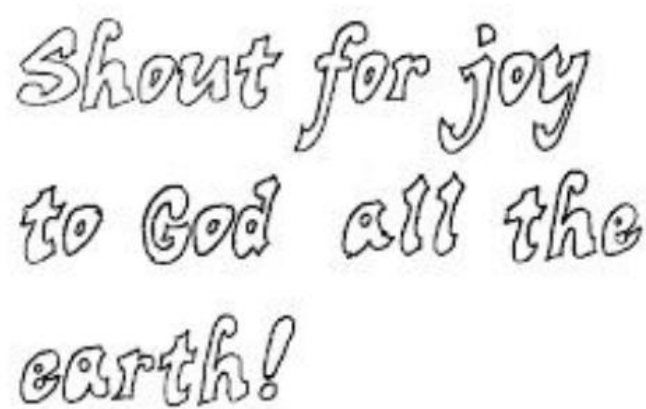 Shout for joy
to God all the
earth!